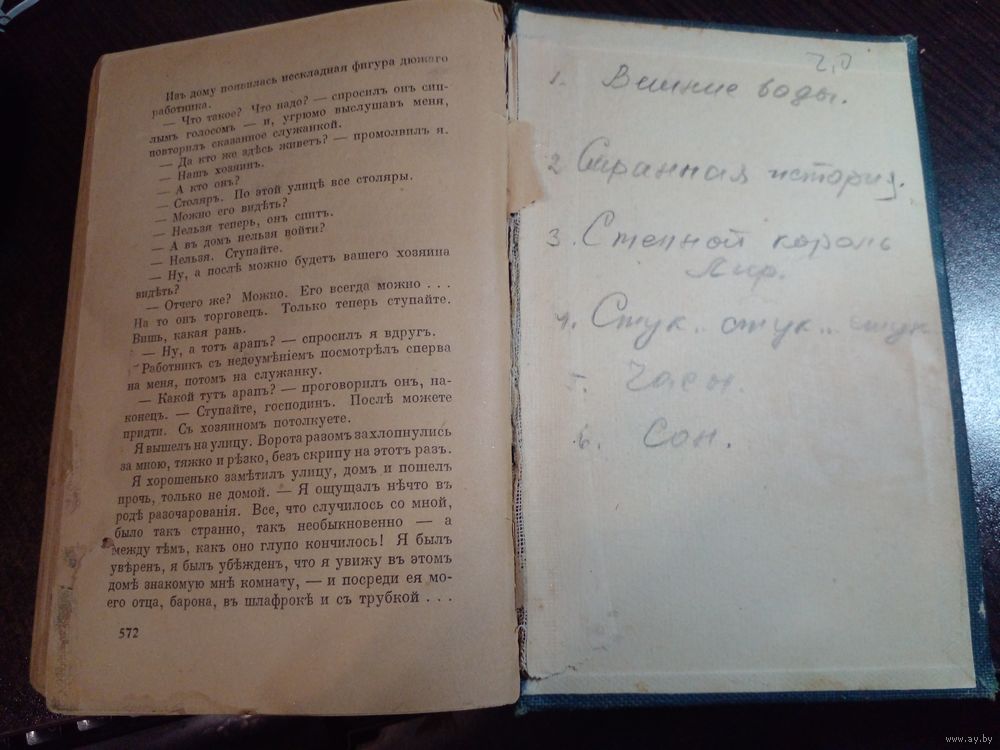 Изъ дому появилась нескладная фигура дюжаго
работника.
— Что такое? Что надо? — спросилъ онъ сип-
лымъ голосомъ — и, угрюмо выслушавъ меня,
повторилъ сказанное служанкой.
— Да кто же здѣсь живетъ? — промолвилъ я.
— Нашъ хозяинъ.
— А кто онъ?
— Столяръ. По этой улицѣ все столяры.
— Можно его видѣть?
— Нельзя теперь, онъ спитъ.
— А въ домъ нельзя войти?
— Нельзя. Ступайте.
— Ну, а послѣ можно будетъ вашего хозяина
видѣть?
— Отчего же? Можно. Его всегда можно . . .
На то онъ торговецъ. Только теперь ступайте.
Вишь, какая рань.
— Ну, а тотъ арапъ? — спросилъ я вдругъ.
Работникъ съ недоумѣніемъ посмотрѣлъ сперва
на меня, потомъ на служанку.
— Какой тутъ арапъ? — проговорилъ онъ, на-
конецъ. — Ступайте, господинъ. Послѣ можете
придти. Съ хозяиномъ потолкуете.
Я вышелъ на улицу. Ворота разомъ захлопнулись
за мною, тяжко и рѣзко, безъ скрипу на этотъ разъ.
Я хорошенько замѣтилъ улицу, домъ и пошелъ
прочь, только не домой. — Я ощущалъ нѣчто въ
родѣ разочарованія. Все, что случилось со мной,
было такъ странно, такъ необыкновенно — а
между тѣмъ, какъ оно глупо кончилось! Я былъ
увѣренъ, я былъ убѣжденъ, что я увижу въ этомъ
домѣ знакомую мнѣ комнату, — и посреди ея мо-
его отца, барона, въ шлафрокѣ и съ трубкой . . .
572
1. Вешние воды.
2 Странная история.
3. Степной король
Лир.
4. Стук.. стук.. стук
5. Часы.
6. Сон.
www.ay.by